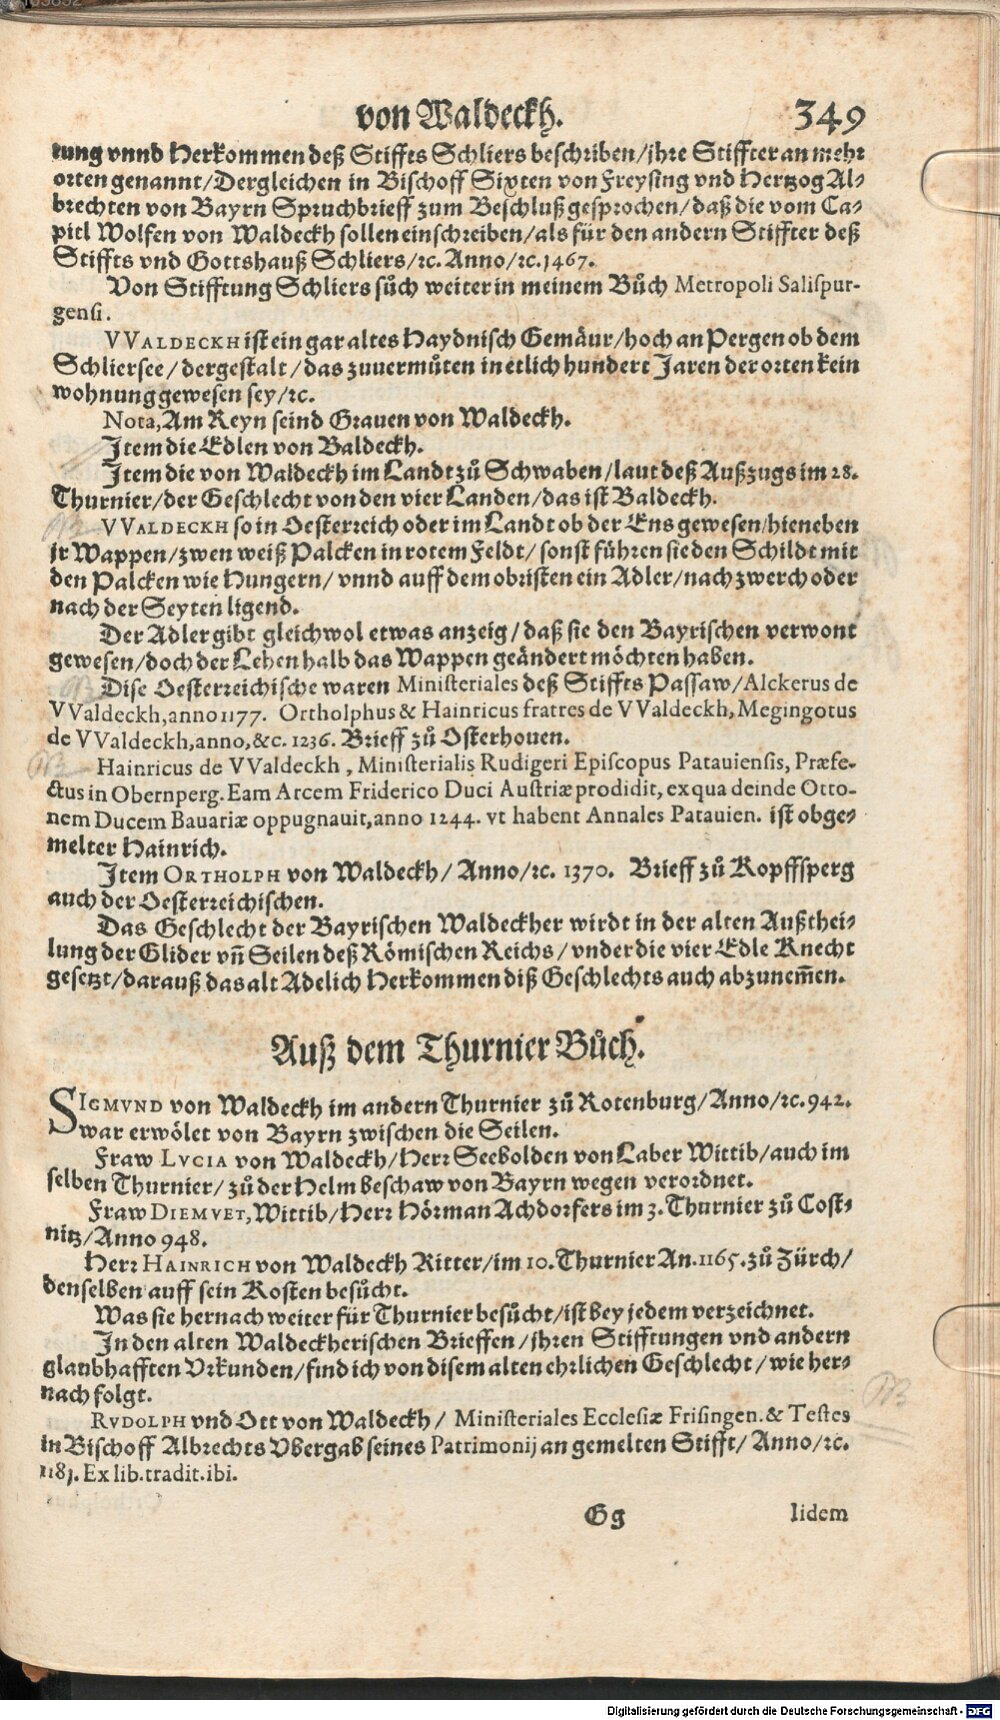 von Waldeckh. 349
tung vnnd Herkommen deß Stiffts Schliers beschriben/jhre Stiffter an mehr
orten genannt/Dergleichen in Bischoff Sixten von Freysing vnd Hertzog Al-
brechten von Bayrn Spruchbrieff zum Beschluß gesprochen/daß die vom Ca-
pitl Wolfen von Waldeckh sollen einschreiben/als für den andern Stiffter deß
Stiffts vnd Gottshauß Schliers/ꝛc. Anno/ꝛc.1467.
Von Stifftung Schliers sůch weiter in meinem Bůch Metropoli Salispur-
gensi.
VVALDECKH ist ein gar altes Haydnisch Gemäur/hoch an Pergen ob dem
Schliersee/dergestalt/das zuuermůten in etlich hundert Jaren der orten kein
wohnung gewesen sey/ꝛc.
Nota, Am Reyn seind Grauen von Waldeckh.
Item die Edlen von Baldeckh.
Item die von Waldeckh im Landt zů Schwaben/laut deß Außzugs im 28.
Thurnier/der Geschlecht von den vier Landen/das ist Baldeckh.
VVALDECKH so in Oesterreich oder im Landt ob der Ens gewesen/hieneben
jr Wappen/zwen weiß Palcken in rotem Feldt/sonst führen sie den Schildt mit
den Palcken wie Hungern/vnnd auff dem obristen ein Adler/nach zwerch oder
nach der Seyten ligend.
Der Adler gibt gleichwol etwas anzeig/daß sie den Bayrischen verwont
gewesen/doch der Lehen halb das Wappen geändert möchten haben.
Dise Oesterreichische waren Ministeriales deß Stiffts Passaw/Alckerus de
VValdeckh,anno 1177. Ortholphus & Hainricus fratres de VValdeckh, Megingotus
de VValdeckh,anno,&c. 1236. Brieff zů Osterhouen.
Hainricus de VValdeckh, Ministerialis Rudigeri Episcopus Patauiensis, Præfe-
ctus in Obernperg. Eam Arcem Friderico Duci Austriæ prodidit, ex qua deinde Otto-
nem Ducem Bauariæ oppugnauit,anno 1244. vt habent Annales Patauien. ist obge-
melter Hainrich.
Item ORTHOLPH von Waldeckh/Anno/ꝛc. 1370. Brieff zů Kopffsperg
auch der Oesterreichischen.
Das Geschlecht der Bayrischen Waldeckher wirdt in der alten Außthei-
lung der Glider vñ Seilen deß Römischen Reichs/vnder die vier Edle Knecht
gesetzt/darauß das alt Adelich Herkommen diß Geschlechts auch abzunem̃en.
Auß dem Thurnier Bůch.
SIGMVND von Waldeckh im andern Thurnier zů Rotenburg/Anno/ꝛc.942.
war erwölet von Bayrn zwischen die Seilen.
Fraw LVCIA von Waldeckh/Herr Seebolden von Laber Wittib/auch im
selben Thurnier/zů der Helmbeschaw von Bayrn wegen verordnet.
Fraw DIEMVET, Wittib/Herr Hörman Achdorfers im 3. Thurnier zů Cost-
nitz/Anno 948.
Herr HAINRICH von Waldeckh Ritter/im 10. Thurnier An.1165. zů Zürch/
denselben auff sein Kosten besůcht.
Was sie hernach weiter für Thurnier besůcht/ist bey jedem verzeichnet.
In den alten Waldeckherischen Brieffen/jhren Stifftungen vnd andern
glaubhafften Vrkunden/find ich von disem alten ehrlichen Geschlecht/wie her-
nach folgt.
RVDOLPH vnd Ott von Waldeckh/ Ministeriales Ecclesiæ Frisingen. & Testes
in Bischoff Albrechts Vbergab seines Patrimonij an gemelten Stifft/Anno/ꝛc.
1181. Ex lib. tradit. ibi.
Gg Iidem
Digitalisierung gefördert durch die Deutsche Forschungsgemeinschaft - DFG